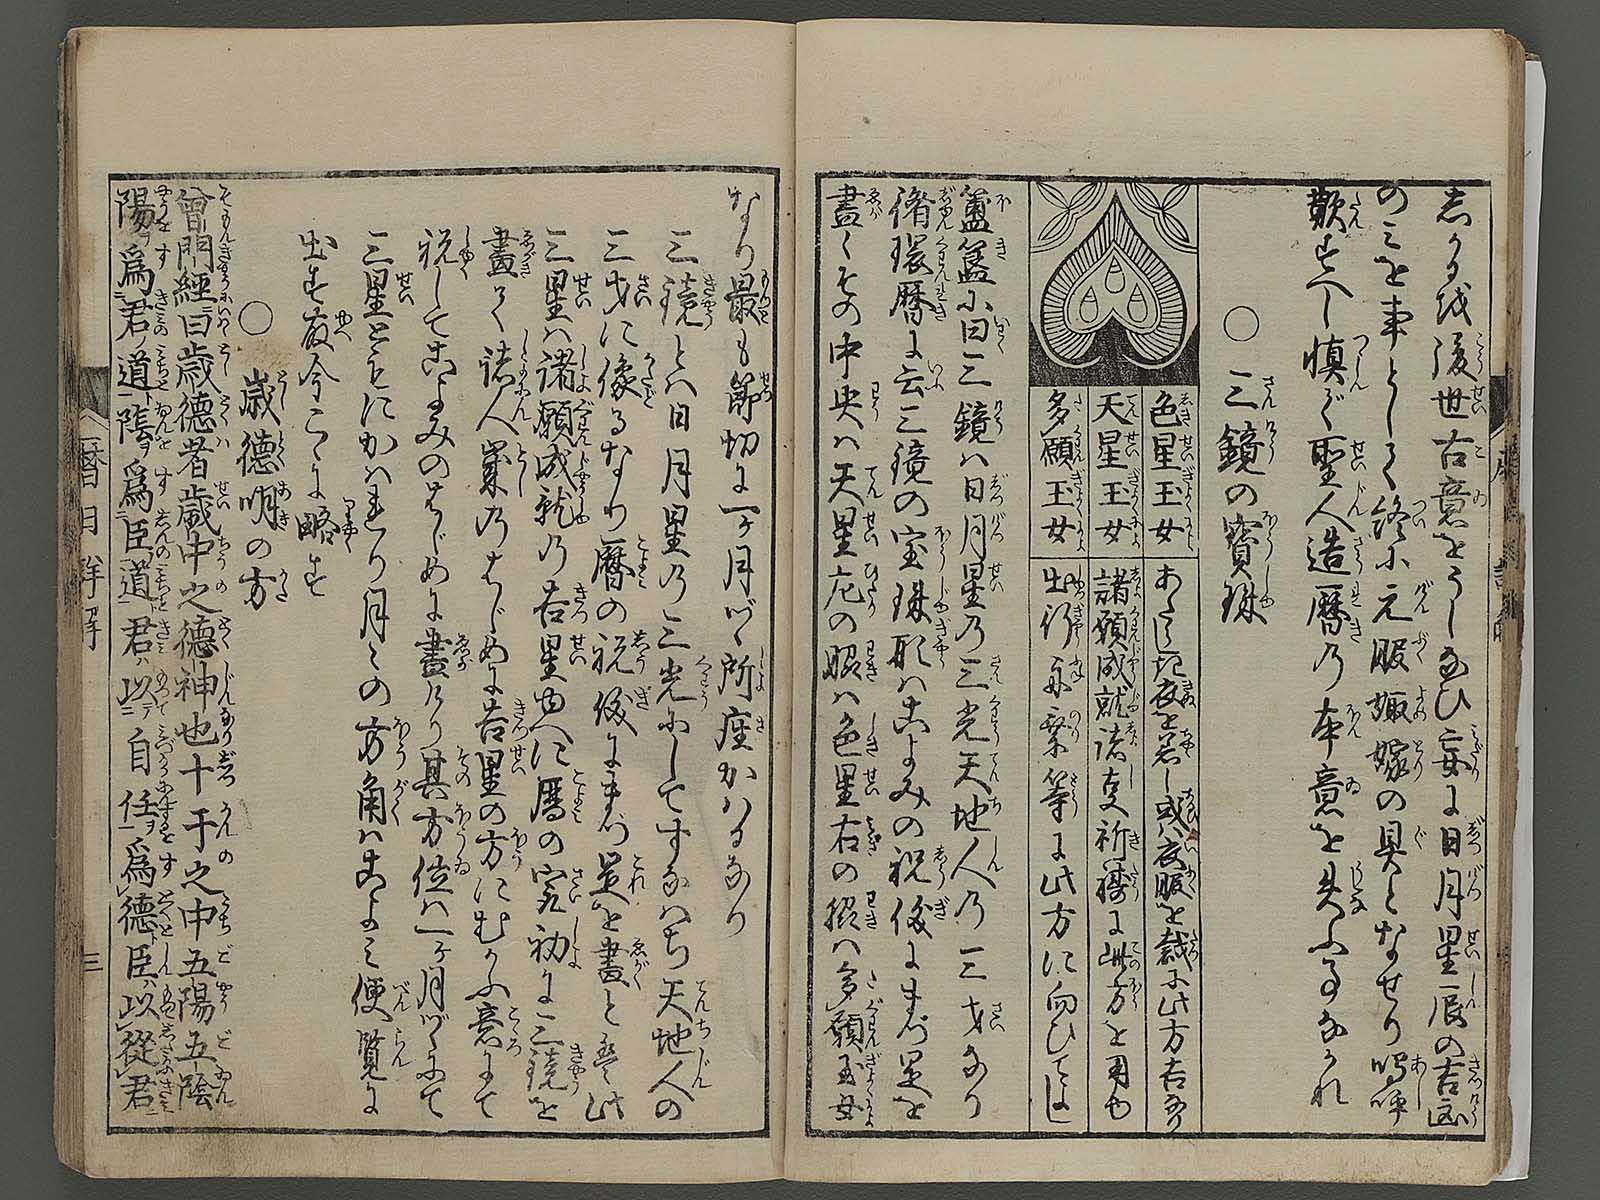 しかるを後世古意をうしなひ妄に日月星辰の吉凶
のミを事として終に元服娵嫁の具となせり嗚呼
歎すへし慎て聖人造暦の本意を失ふ事なかれ
○三鏡の寳珠
色星玉女
天星玉女
多願玉女
あたらしき衣を着し或ハ衣服を裁に此方吉なり
諸願成就諸支祈祷に此方を用ゆ
出行舟乗等に此方に向ひてよし
簠簋に曰三鏡ハ日月星の三光天地人の三才なり
循環暦に云三鏡の宝珠形ハこよみの祝儀にまづ是を
畫くその中央ハ天星左の脇ハ色星右の脇ハ多願玉女
なり最も節切に一ヶ月づゝ所座かハるなり
三鏡とハ日月星の三光にしてすなハち天地人の
三才に像るなり暦の祝儀にまづ是を畫と云々此
三星ハ諸願成就の吉星ゆへに暦の宂初に三鏡を
畫て諸人歳のはじめに吉星の方にむかふ意にて
祝してこよみのはじめに畫けり其方位ハ一ヶ月づゝにて
三星ともにかハれり月々の方角ハこよミ便覧に
出す故今こゝに略す
○歳徳明の方
曽門經曰歳德者歳中之德神也十干之中五陽五陰
陽ヲ爲君ノ道ト陰ヲ爲臣ノ道ト君ハ以テ自任ヲ爲德ト臣ハ以從君ニ
暦日詳解
三